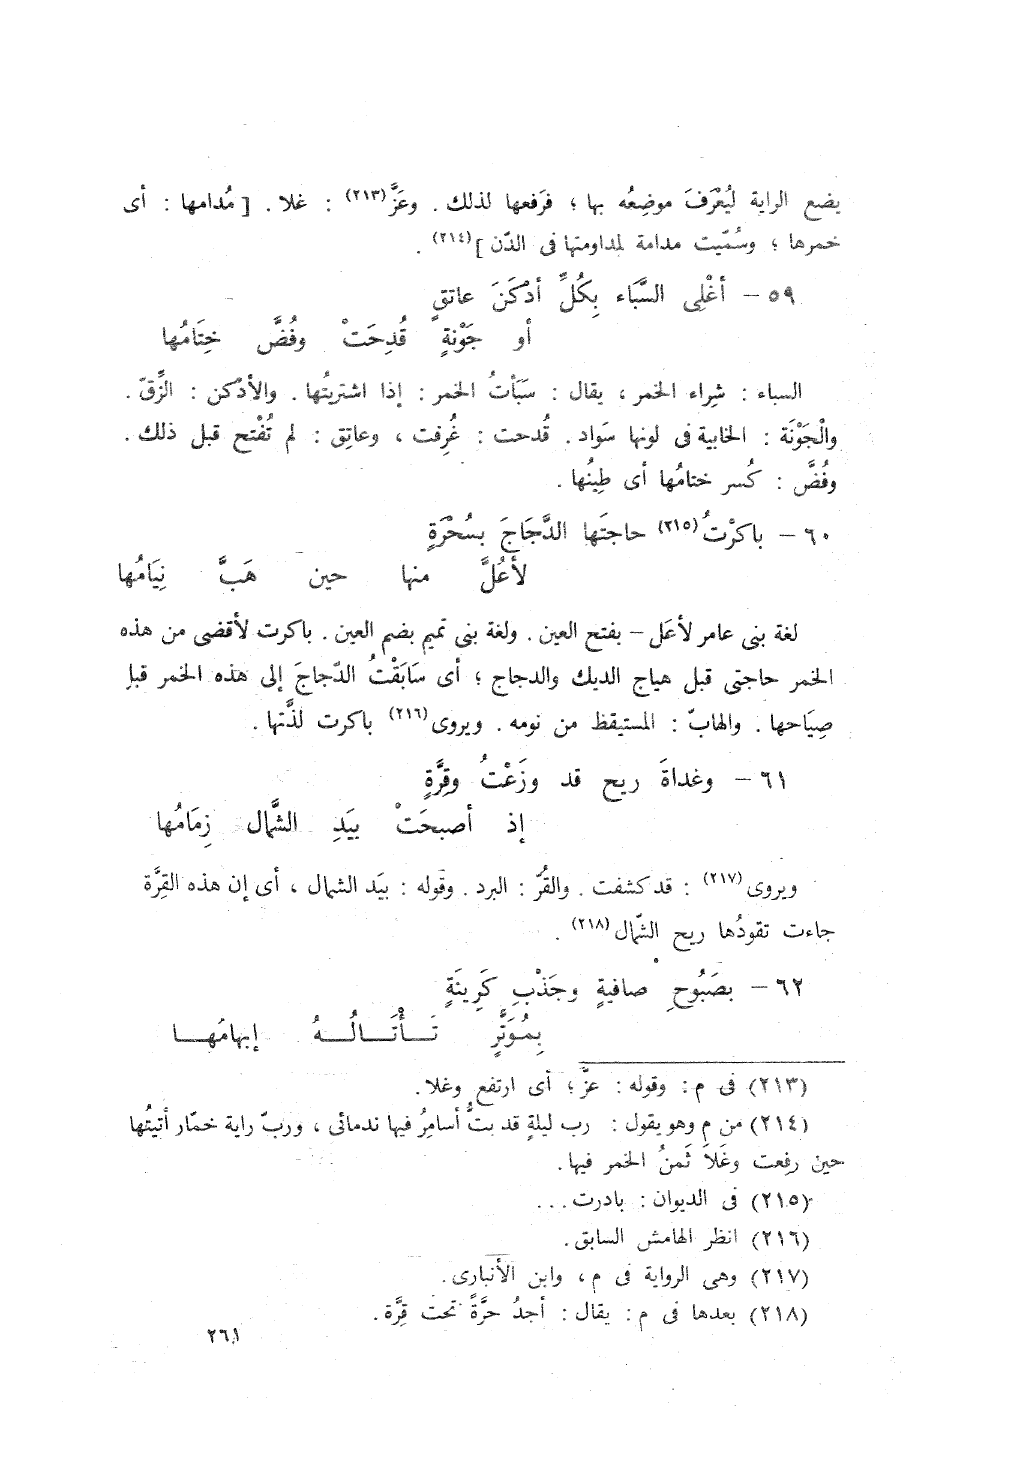 يضع الراية ليُعْرَفَ موضِعُه بها ؛ فرَفعها لذلك . وعَزَّ(٢١٣) : غلا . [ مُدامها : أى
خمرها ؛ وسُمّيت مدامة لمداومتها فى الدّن ](٢١٤) .
٥٩ – أغْلِى السَّبَاء بِكُلِّ أدْكَنَ عاتقٍ
أو جَوْنةٍ قُدِحَتْ وفُضَّ خِتَامُها
السباء : شِراء الخمر ، يقال : سَبَأتُ الخمر : إذا اشتريتُها . والأدْكن : الزِّقّ .
والْجَوْنَة : الخابية فى لونها سَواد . قُدحت : غُرِفت ، وعاتِق : لم تُفْتح قبل ذلك .
وفُضَّ : كُسر ختامُها أى طِينُها .
٦٠ – باكرْتُ(٢١٥) حاجتَها الدَّجَاجَ بسُحْرَةٍ
لأعُلَّ منها حين هَبَّ نِيَامُها
لغة بنى عامر لأعَل – بفتح العين . ولغة بنى تميم بضم العين . باكرت لأقضى من هذه
الخمر حاجتى قبل هياج الديك والدجاج ؛ أى سَابَقْتُ الدّجاجَ إلى هذه الخمر قبل
صِيَاحها . والهابّ : المستيقظ من نومه . ويروى(٢١٦) باكرت لذَّتها .
٦١ – وغداةَ ريح قد وزَعْتُ وقِرَّةٍ
إذ أصبحَتْ بيَدِ الشَّمال زِمَامُها
ويروى(٢١٧) : قد كشفت . والقُرّ : البرد . وقوله : بيَد الشمال ، أى إن هذه القِرَّة
جاءت تقودُها ريح الشّمال(٢١٨) .
٦٢ – بصَبُوحِ صافيةٍ وجَذْبِ كَرِينَةٍ
بِمُوَتَّرٍ تَــأْتَــالُــهُ إبهامُهــا
(٢١٣) فى م : وقوله : عزَّ ؛ أى ارتفع وغلا .
(٢١٤) من م وهو يقول : رب ليلةٍ قد بتُّ أسامِرُ فيها ندمائى ، وربّ راية خمّار أتيتُها
حين رفِعت وغَلاَ ثَمنُ الخمر فيها .
(٢١٥) فى الديوان : بادرت . . .
(٢١٦) انظر الهامش السابق .
(٢١٧) وهى الرواية فى م ، وابن الأنبارى .
(٢١٨) بعدها فى م : يقال : أجدُ حرَّةً تحت قِرَّة .
٢٦١